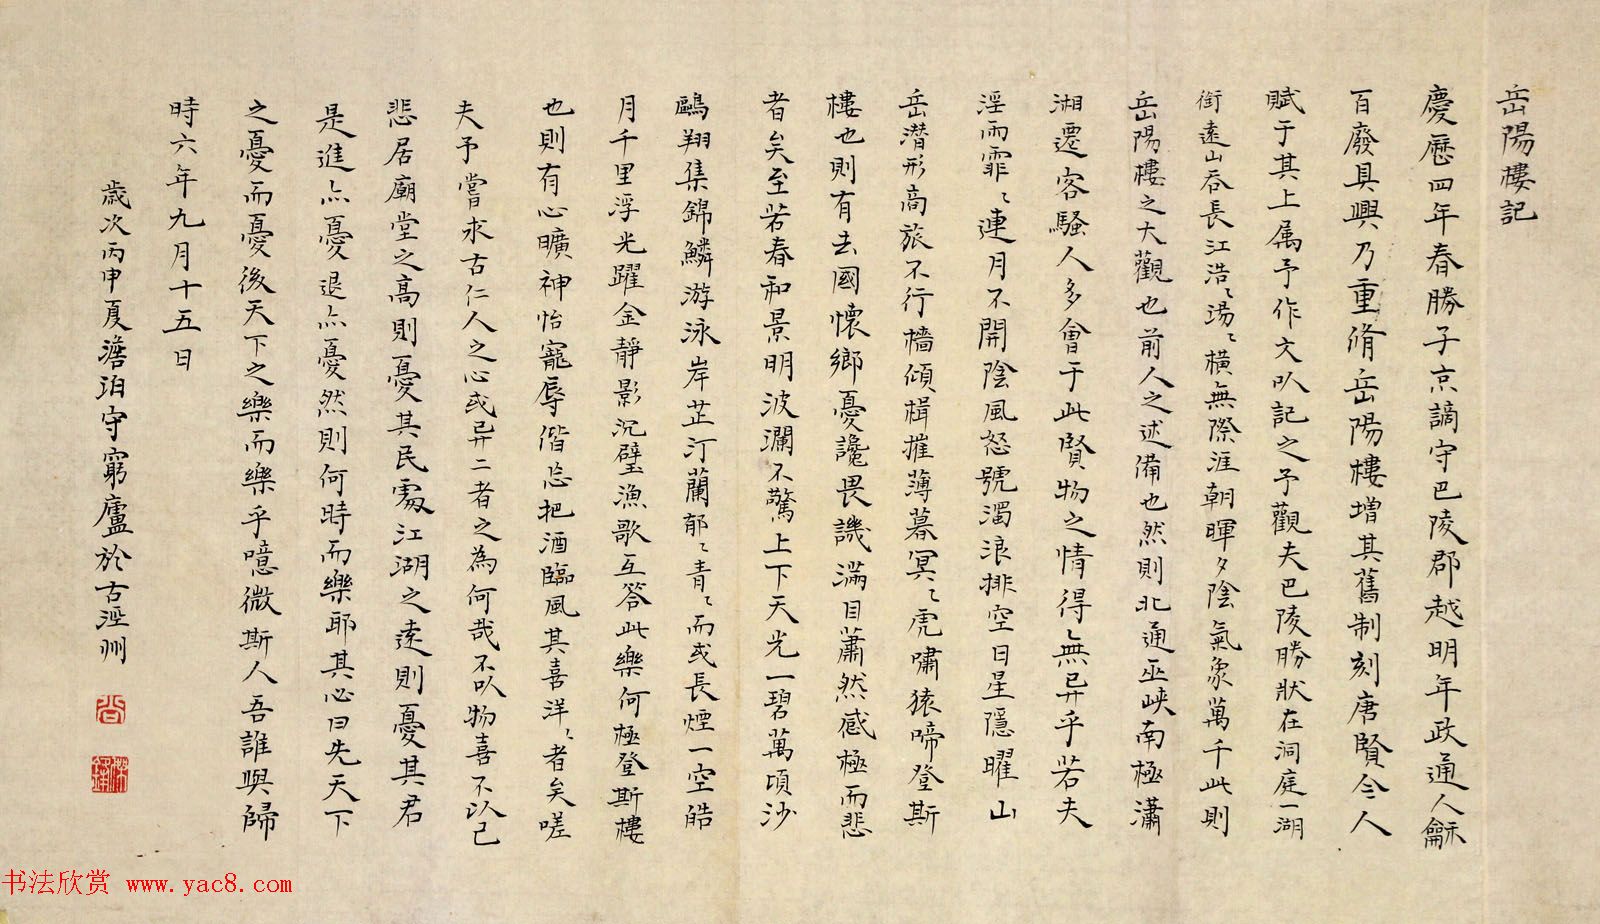 岳陽樓記
慶歷四年春勝子京謫守巴陵郡越明年政通人龢
百廢具興乃重脩岳陽樓增其舊制刻唐賢今人
賦于其上属予作文以記之予觀夫巴陵勝狀在洞庭一湖
銜遠山吞長江浩〻湯〻橫無際涯朝暉夕陰氣象萬千此則
岳陽樓之大觀也前人之述備也然則北通巫峽南極瀟
湘遷客騷人多會于此賢物之情得無异乎若夫
淫雨霏〻連月不開陰風怒號濁浪排空日星隱曜山
岳潛形商旅不行檣傾楫摧薄暮冥〻虎嘯猿啼登斯
樓也則有去國懷鄉憂讒畏譏滿目蕭然感極而悲
者矣至若春和景明波瀾不驚上下天光一碧萬頃沙
鷗翔集錦鱗游泳岸芷汀蘭郁〻青〻而或長煙一空皓
月千里浮光躍金靜影沉璧漁歌互答此樂何極登斯樓
也則有心曠神怡寵辱偕忘把酒臨風其喜洋〻者矣嗟
夫予嘗求古仁人之心或异二者之為何哉不以物喜不以己
悲居廟堂之高則憂其民處江湖之遠則憂其君
是進亦憂退亦憂然則何時而樂耶其必曰先天下
之憂而憂後天下之樂而樂乎噫微斯人吾誰與歸
時六年九月十五日
歲次丙申夏澹泊守窮廬於古涇州
书法欣赏 www.yac8.com